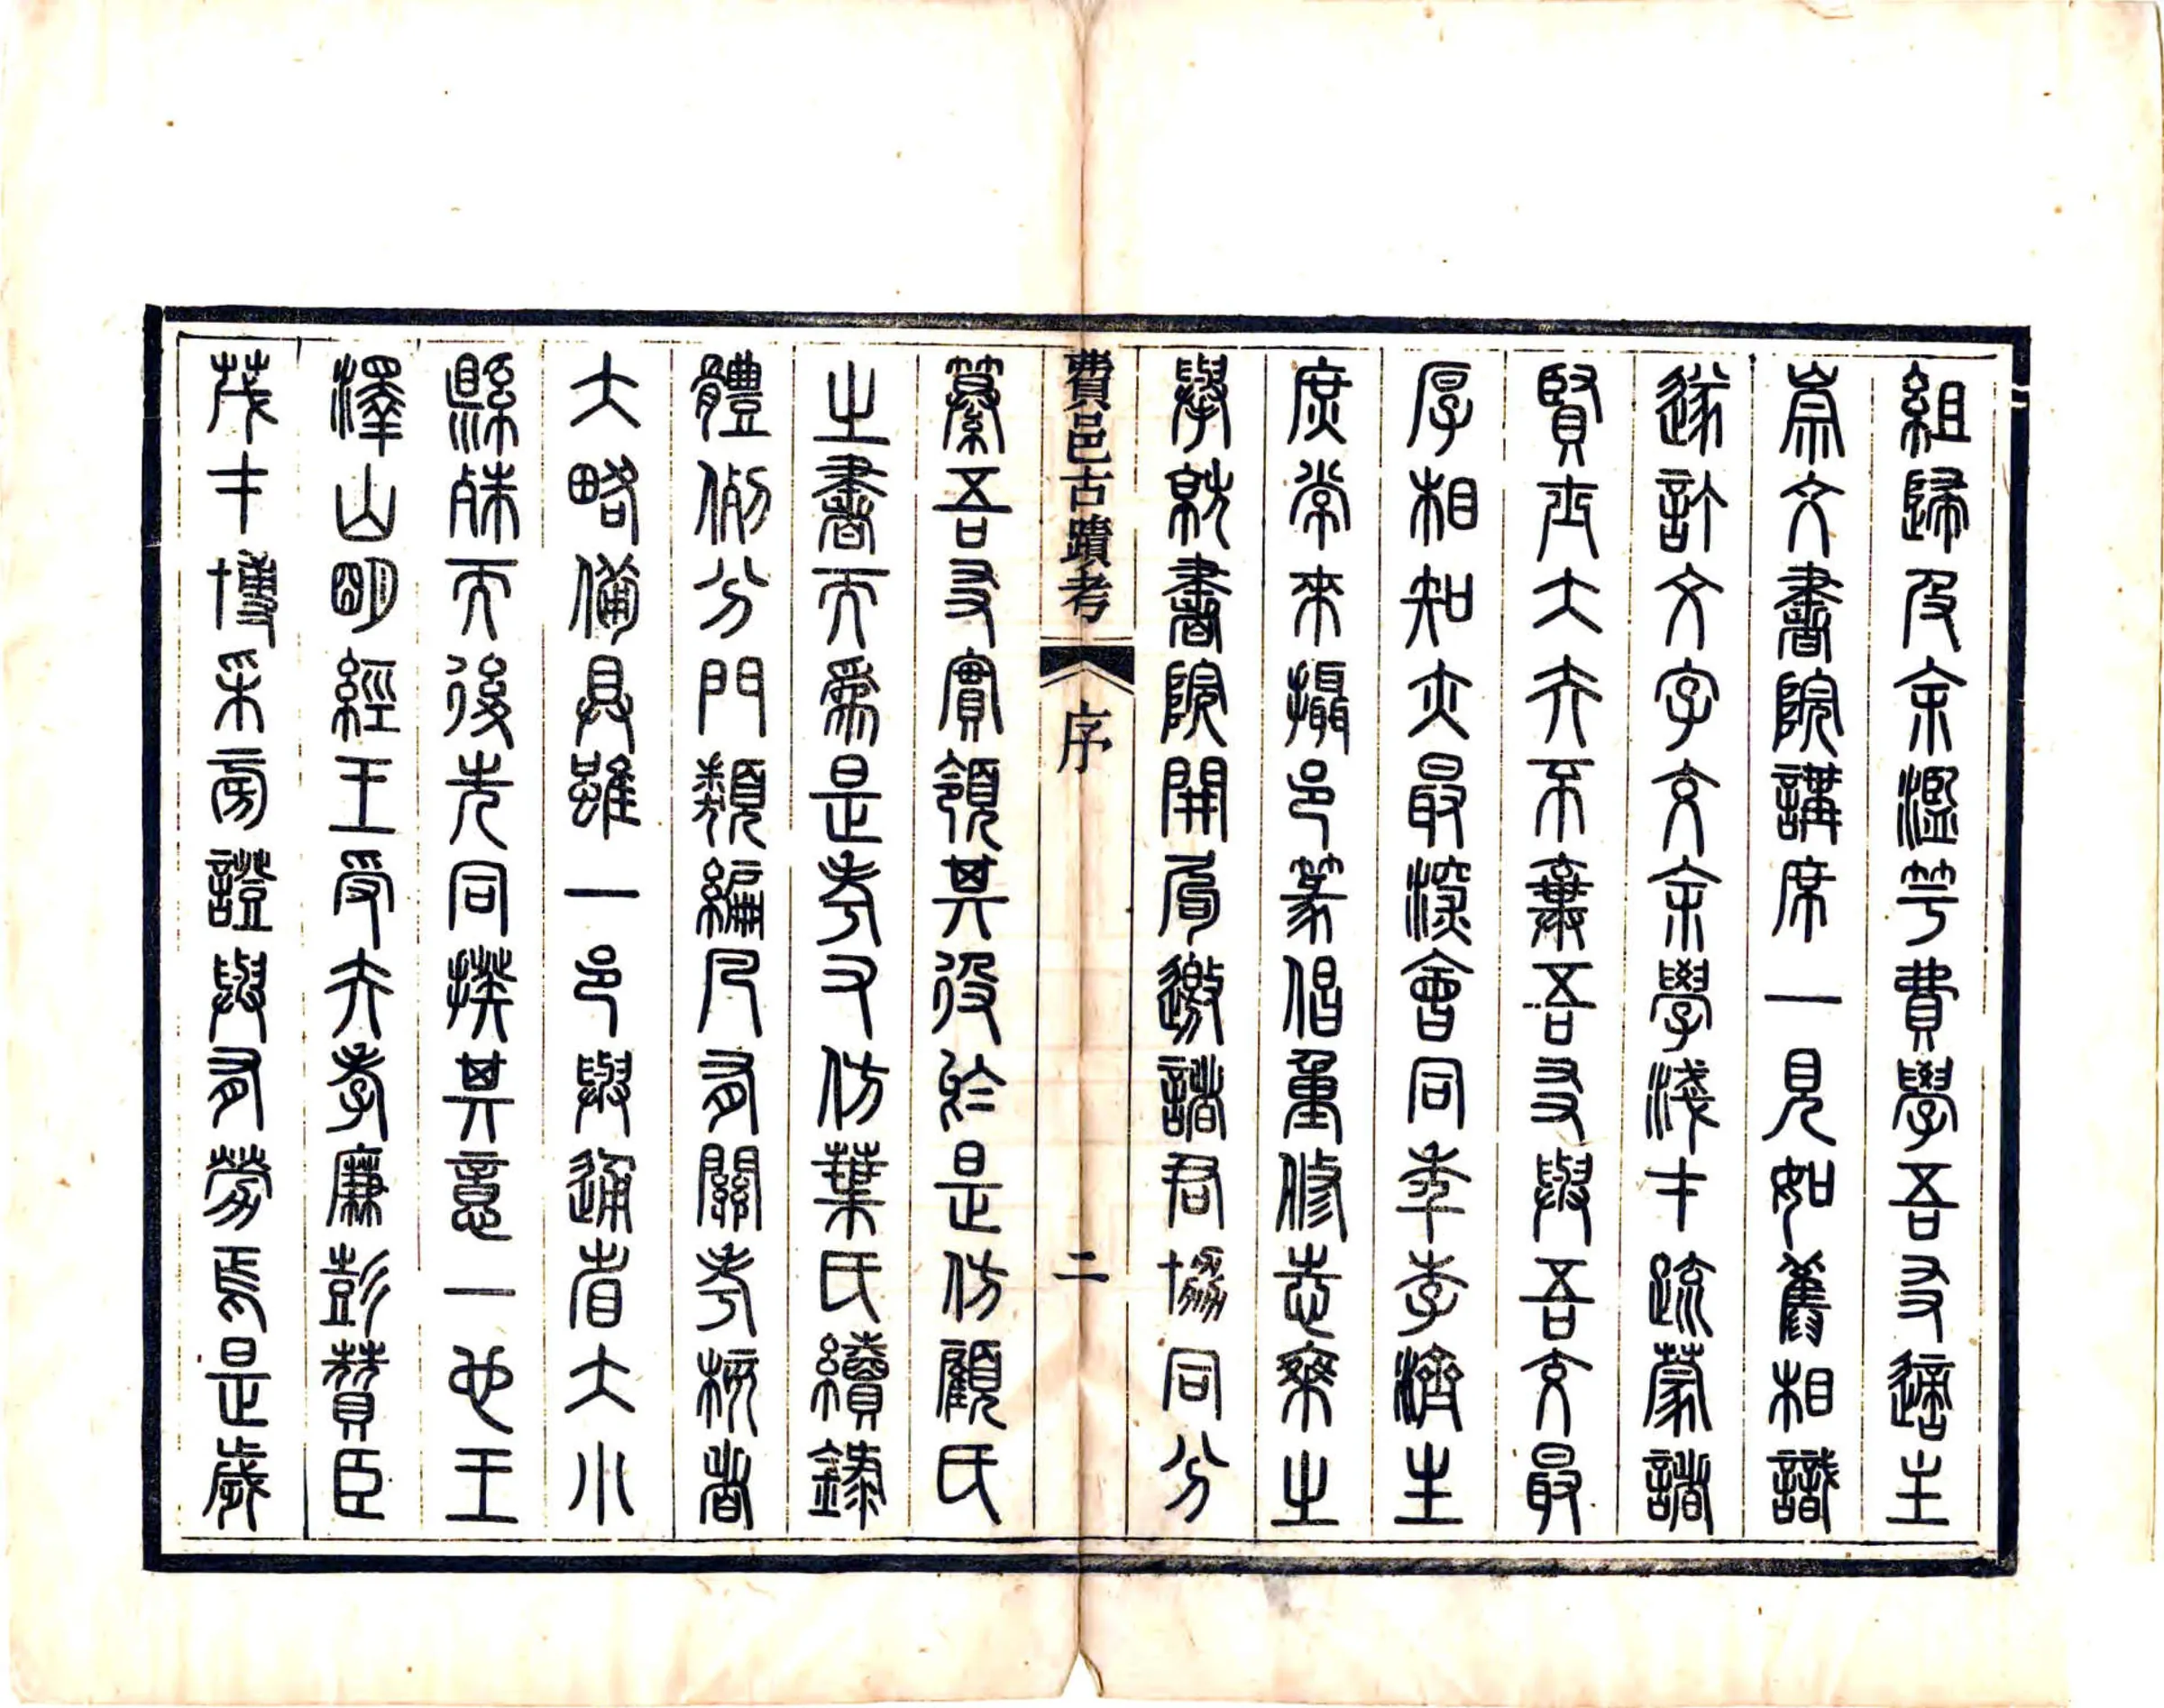 組歸及余濫竽費學吾友適主
崇文書院講席一見如舊相識
遂訂文字交余學淺才疏蒙諸
賢士大夫不棄吾友與吾交最
厚相知亦最深會同年李濟生
庶常來攝邑篆倡重修志乘之
舉就書院開局邀諸君協同分
費邑古蹟考
序
二
纂吾友實領其役於是仿顧氏
之書而爲是考又仿葉氏續錄
體例分門類編凡有關考核者
大略備具雖一邑與通省大小
縣殊而後先同揆其意一也王
澤山明經王受夫孝廉彭贊臣
茂才博采旁證與有勞焉是歲